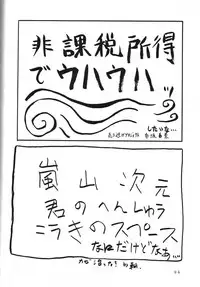 非課税所得
でウハウハ
したいな…
嵐山次元
君のへんしゅう
こうきのスペース
なんだけどなあ…